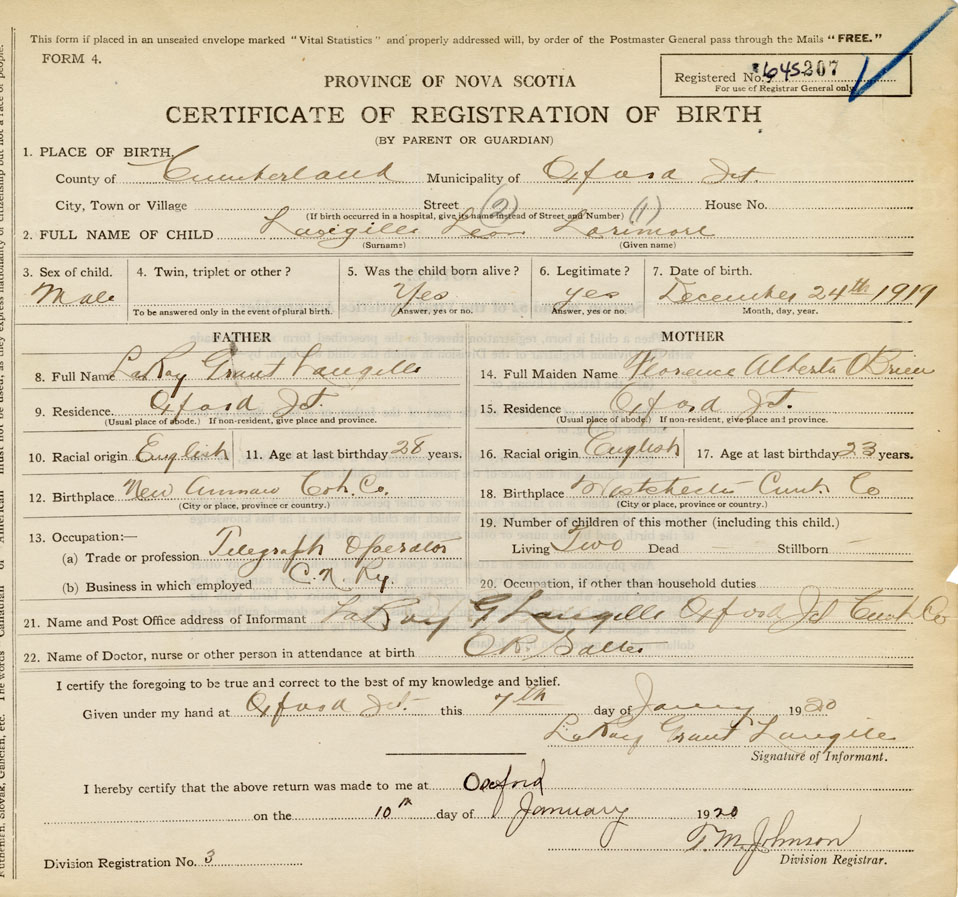 This form if placed in an unsealed envelope marked "Vital Statistics" and properly addressed will, by order of the Postmaster General pass through the Mails "FREE."
FORM 4.
PROVINCE OF NOVA SCOTIA
Registered No. 645207
For use of Registrar General only
CERTIFICATE OF REGISTRATION OF BIRTH
(BY PARENT OR GUARDIAN)
1. PLACE OF BIRTH
County of Cumberland Municipality of Oxford Jct.
City, Town or Village Street House No.
(If birth occurred in a hospital, give its name instead of Street and Number)
(2) (1)
2. FULL NAME OF CHILD Langille Leon Lorimore
(Surname) (Given name)
3. Sex of child. 4. Twin, triplet or other? 5. Was the child born alive? 6. Legitimate? 7. Date of birth.
Male Yes yes December 24th 1919
To be answered only in the event of plural birth. Answer, yes or no. Answer, yes or no. Month, day, year.
FATHER MOTHER
8. Full Name LaRoy Grant Langille 14. Full Maiden Name Florence Alberta O'Brien
9. Residence. Oxford Jct 15. Residence Oxford Jct.
(Usual place of abode.) If non-resident, give place and province. (Usual place of abode.) If non-resident, give place and province.
10. Racial origin English 11. Age at last birthday 28 years. 16. Racial origin English 17. Age at last birthday 23 years.
12. Birthplace New Annan Col. Co. 18. Birthplace Westchester Cumb. Co
(City or place, province or country.) (City or place, province or country.)
13. Occupation:— 19. Number of children of this mother (including this child.)
(a) Trade or profession Telegraph Operator Living Two Dead Stillborn
(b) Business in which employed C.N. Ry. 20. Occupation, if other than household duties
21. Name and Post Office address of Informant LaRoy G Langille Oxford Jct Cumb. Co
22. Name of Doctor, nurse or other person in attendance at birth
I certify the foregoing to be true and correct to the best of my knowledge and belief.
Given under my hand at Oxford Jct. this 7th day of Janury 1920
LaRoy Grant Langille
Signature of Informant.
I hereby certify that the above return was made to me at Oxford
on the 10th day of January 1920
T.M. Johnson
Division Registration No. 3 Division Registrar.